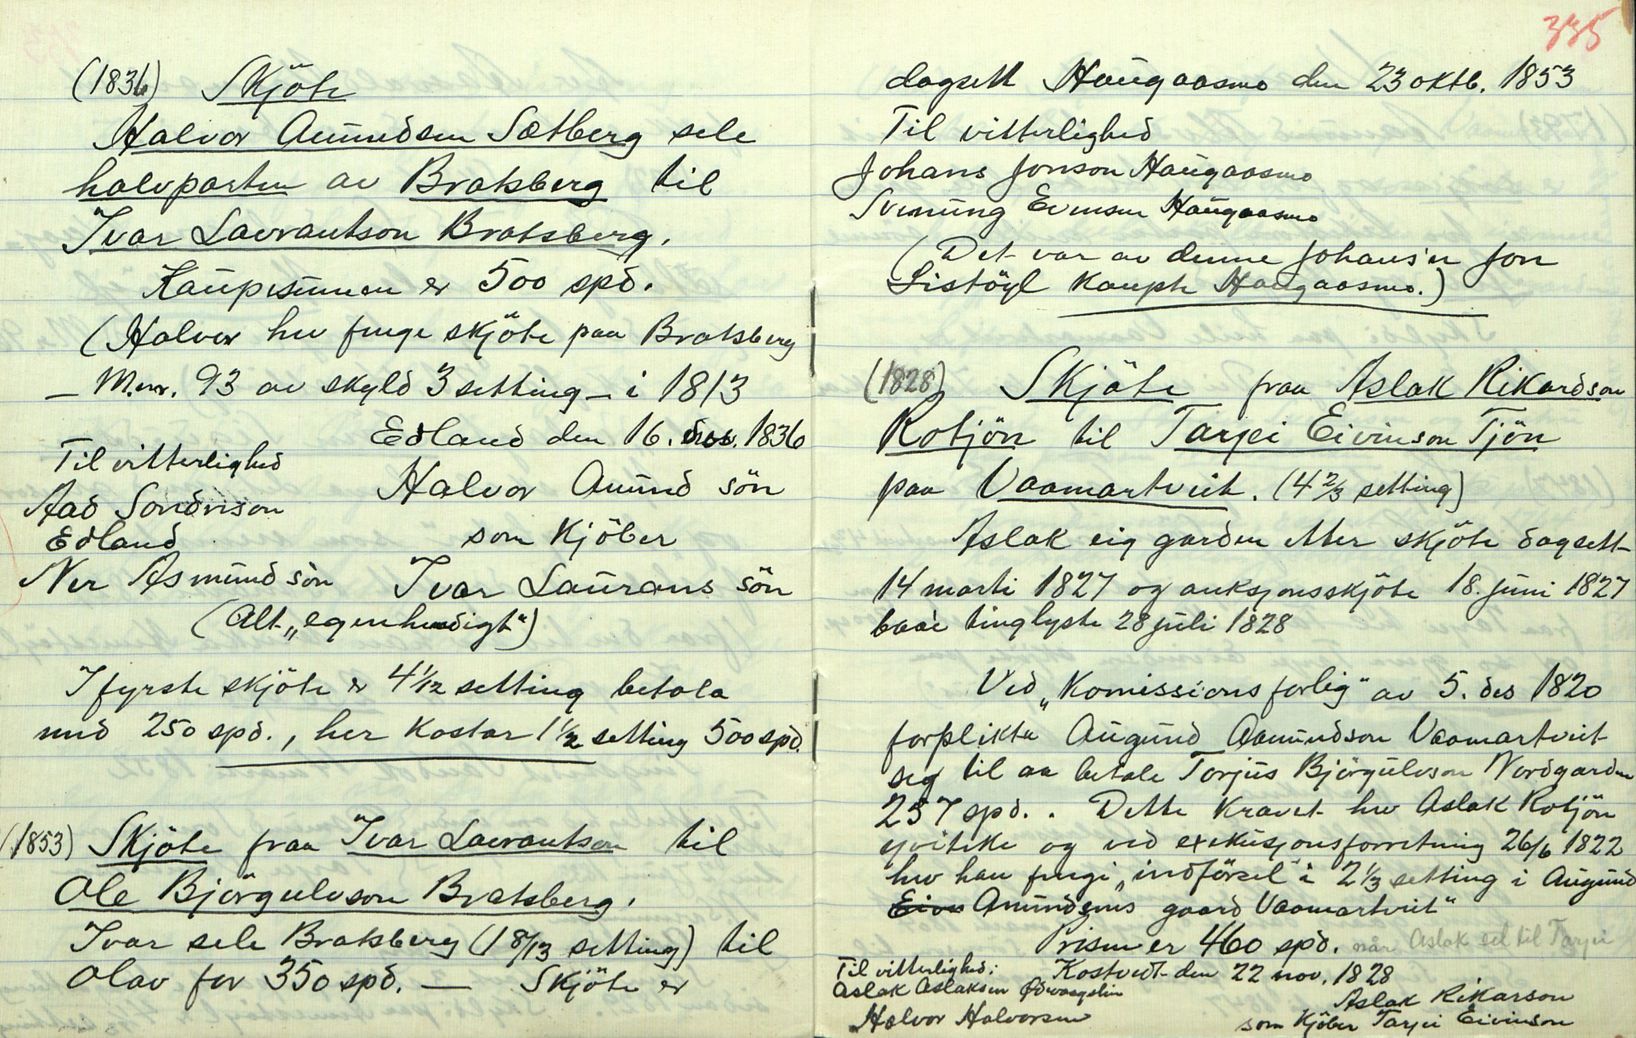 (1836) Skjöte
Halvor Aamundsen Sætberg sele
halvparten av Bratsberg til
Ivar Lavrantson Bratsberg.
Kaupesummen er 500 spd.
(Halvor hev fenge skjöte paa Bratsberg
– M.nr. 93 av skyld 3 setting – i 1813
Edland den 16. des. 1836
Til vitterlighed
Halvor Amund sön
Aad Sondrison
Edland
som Kjöber
Ner Asmund sön
Ivar Laurans sön
(Alt "egenhendigt")
I fyrste skjöte er 4 1/12 setting betala
med 250 spd., her kostar 1 1/2 setting 500 spd.
(1853) Skjöte fraa Ivar Lavrantson til
Ole Björgulvson Bratsberg.
Ivar sele Bratsberg (1 8/13 setting) til
Olav for 350 spd. — Skjöte er
335
dagsett Haugaasmo den 23 oktb. 1853
Til vitterlighed
Johans Jonson Haugaasmo
Svenung Evensen Haugaasmo
(Det var av denne Johans'en Jon
Listöyl kaupte Haugaasmo.)
(1828) Skjöte fraa Aslak Rikardson
Rotjön til Tarjei Eivinson Tjön
paa Vaamartveit. (4 2/3 setting)
Aslak eig garden etter skjöte dagsett
14 marti 1827 og auksjonsskjöte 18. juni 1827
baae tinglyste 28 juli 1828
Ved "Komissionsforlig" av 5. des 1820
forplikta Augund Aamundson Vaamartveit
seg til aa betale Torjus Björgulvson Nordgarden
257 spd.. Dette kravet hev Aslak Rotjön
 og ved exekusjonsforretning 26/6 1822
hev han fengi "indförsel i 2 1/3 setting i Augund
Amundsens gaard Vaamartveit"
Prisen er 460 spd. når Aslak sel til Tarjei
Til vitterlighed: Kostvedt den 22 nov. 1828
Aslak Aslaksen
Aslak Rikarson
Halvor Halvorsen
som Kjöber Tarjei Eivinson